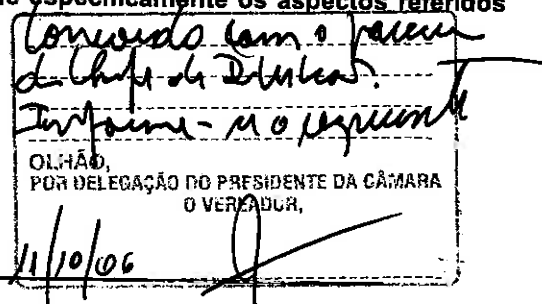 especificamente os aspectos referidos
Concordo com o parecer
do Chefe de Divisão.
Informe-se o requerente
OLHÃO,
POR DELEGAÇÃO DO PRESIDENTE DA CÂMARA
O VEREADOR,
11/10/06